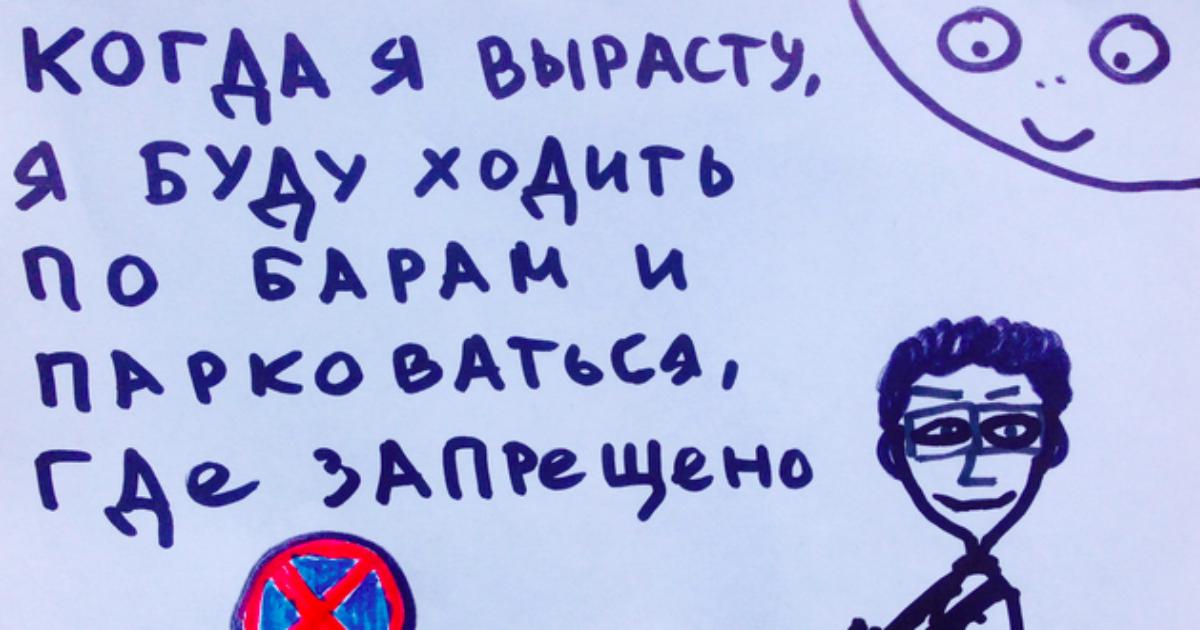 КОГДА Я ВЫРАСТУ,
Я БУДУ ХОДИТЬ
ПО БАРАМ И
ПАРКОВАТЬСЯ,
ГДЕ ЗАПРЕЩЕНО